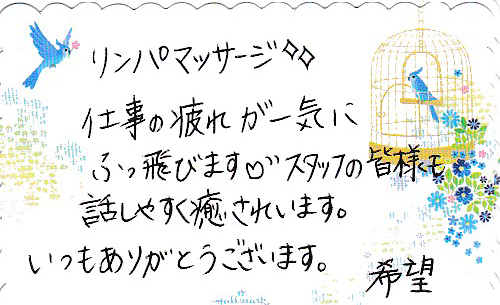 リンパマッサージ◇◇
仕事の疲れが一気に
ふっ飛びます♡〃スタッフの皆様も
話しやすく癒されています。
いつもありがとうございます。
希望